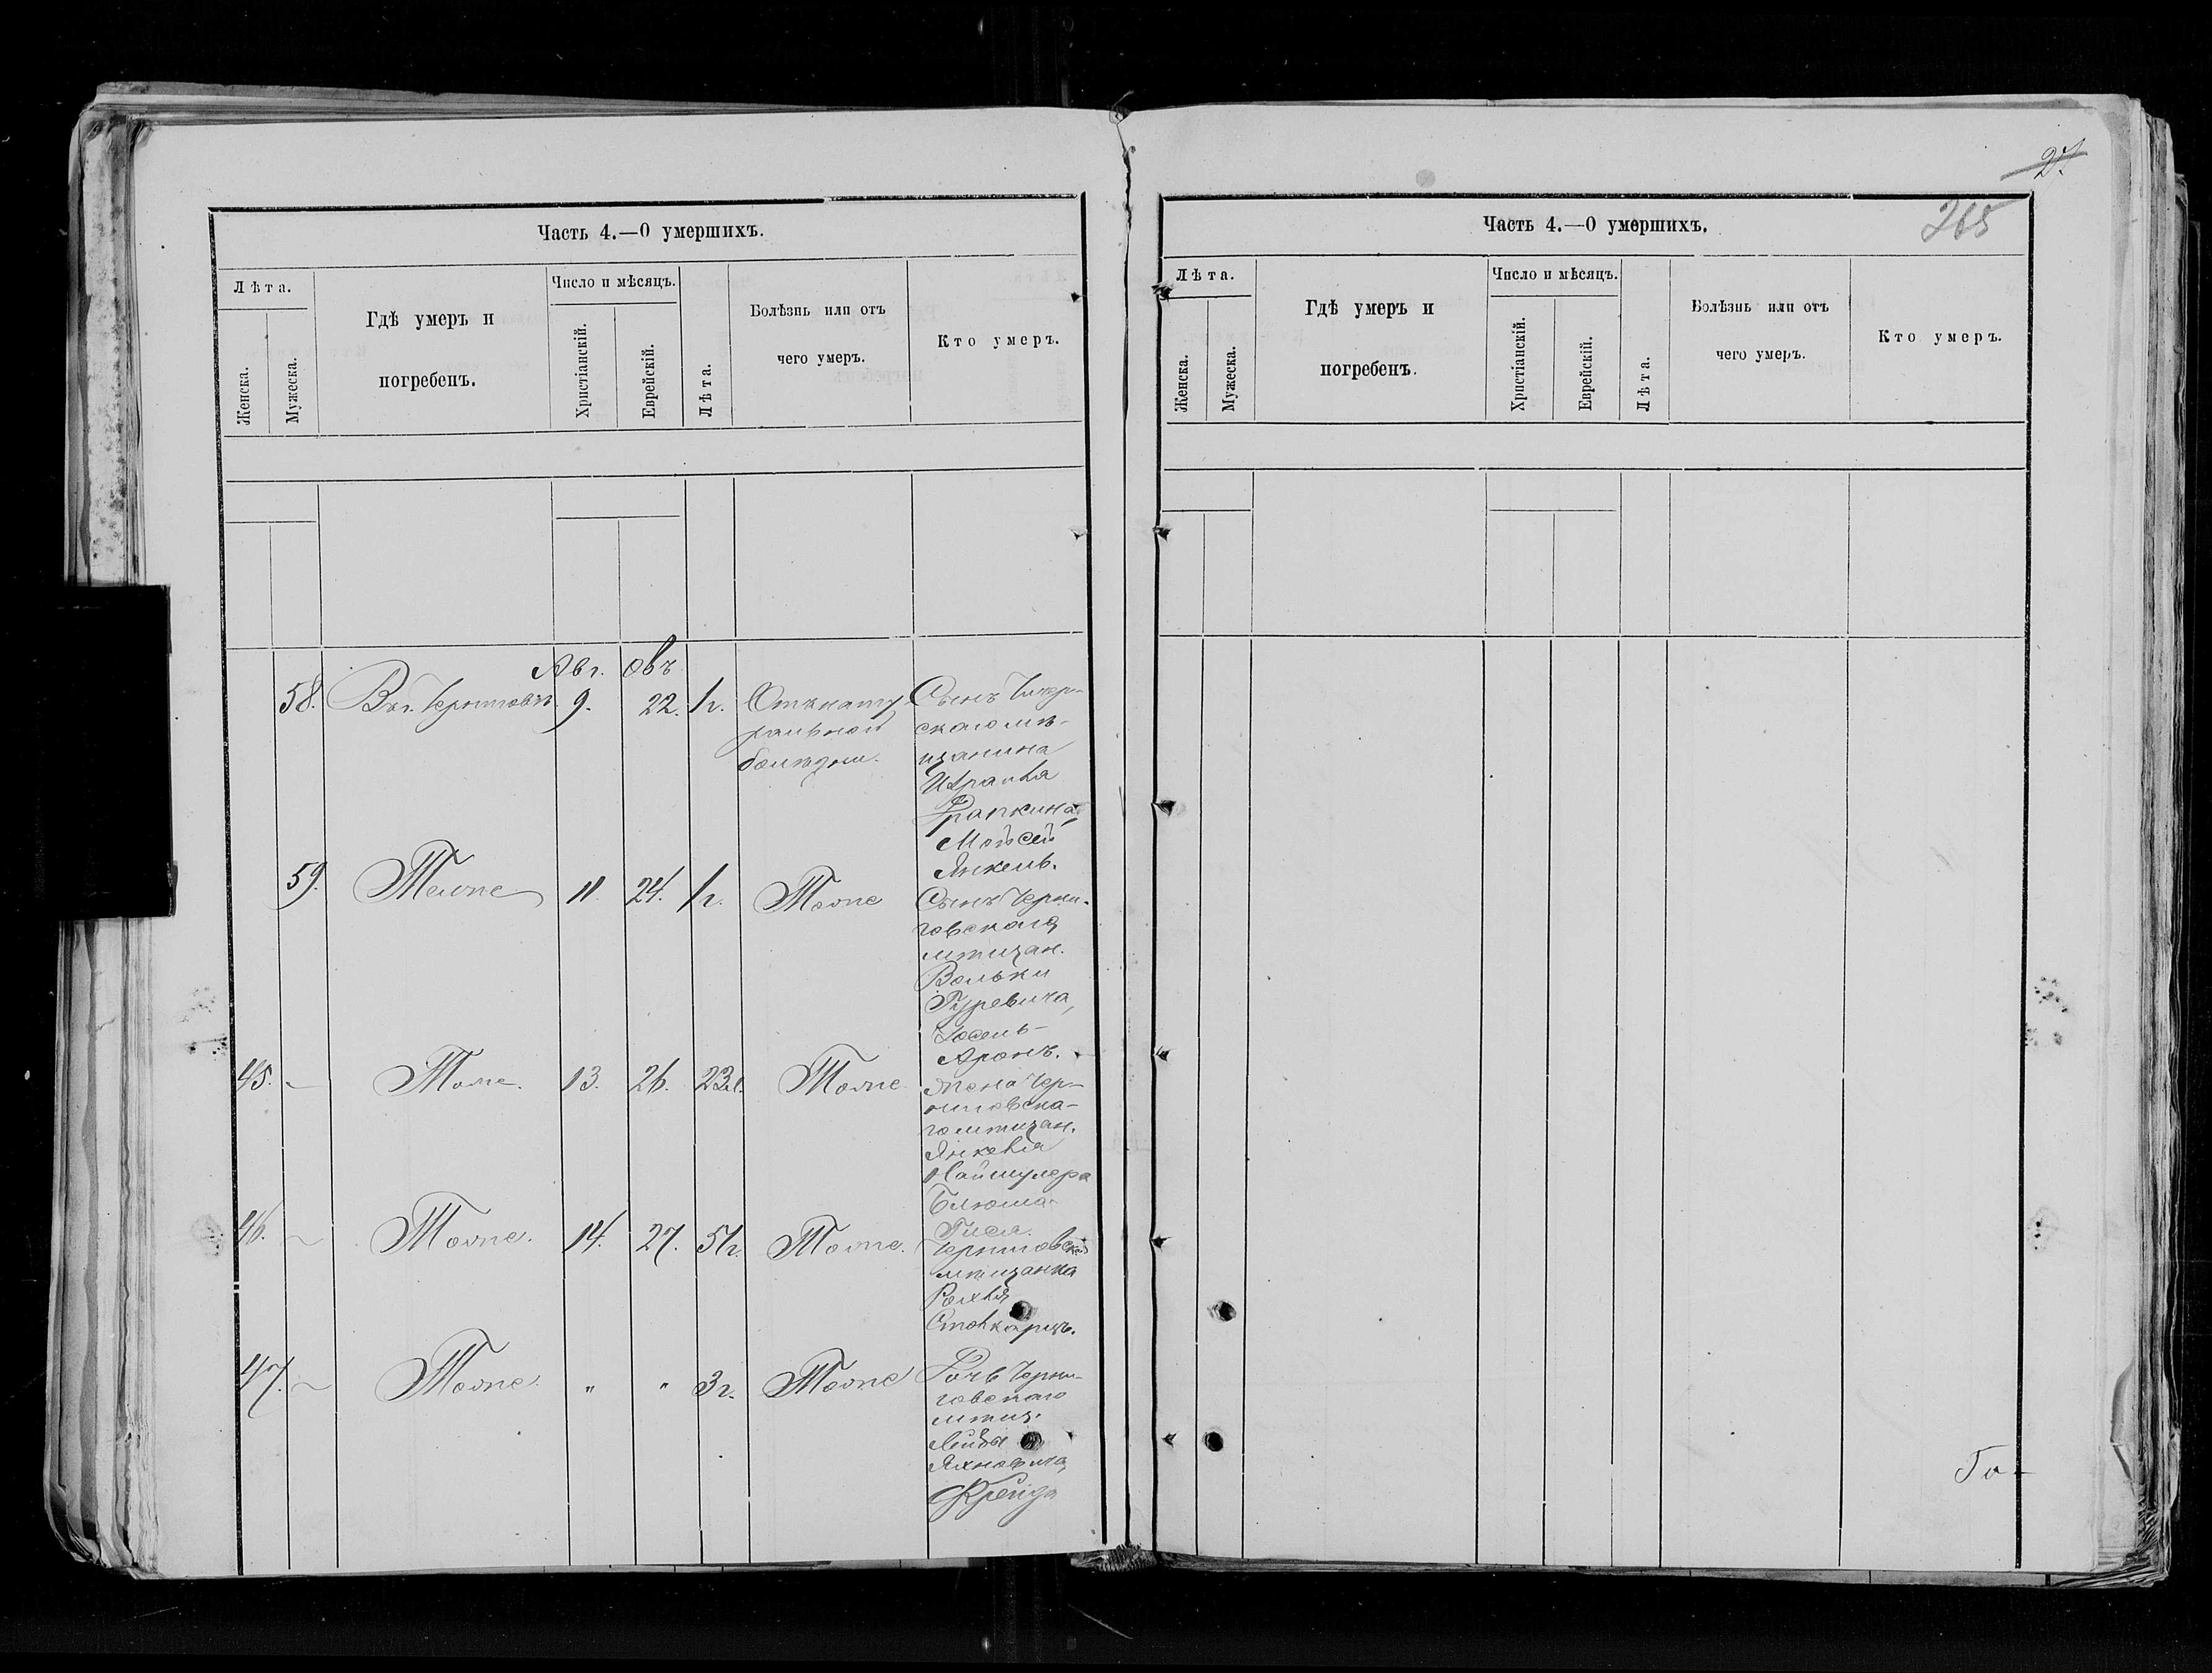 27.
265
Часть 4.—О умершихъ.
Лѣта.
Женска.
Мужеска.
Гдѣ умеръ и
погребенъ.
Число и мѣсяцъ.
Христіанскій.
Еврейскій.
Лѣта.
Болѣзнь или отъ
чего умеръ.
Кто умеръ.
Авг. Овъ
58. Въ г. Черниговѣ. 9. 22. 1 г. Отъ нату
ральной
болѣзни.
Сынъ
скаго мѣ-
щанина
Израиля
Фрапкина,
Мовсей
Янкель.
59. Тоже 11. 24. 1 г. Тоже
Сынъ Черни-
говскаго
мѣщан.
Вольки
Гуревича,
Іосель-
Аронъ.
45. — Тоже. 13. 26. 23 л. Тоже
Жена Чер-
ниговска-
го мѣщан.
Янкеля
Наймулера
Блюма-
Гися.
46. — Тоже. 14. 27. 51 г. Тоже.
Черниговская
мѣщанка
Рохля
47. — Тоже. " " 3 г. Тоже
Дочь Черни-
говскаго
мѣщ.
Лейбы
Яхновича,
Фрейда
Часть 4.—О умершихъ.
Лѣта.
Женска.
Мужеска.
Гдѣ умеръ и
погребенъ.
Число и мѣсяцъ.
Христіанскій.
Еврейскій.
Лѣта.
Болѣзнь или отъ
чего умеръ.
Кто умеръ.